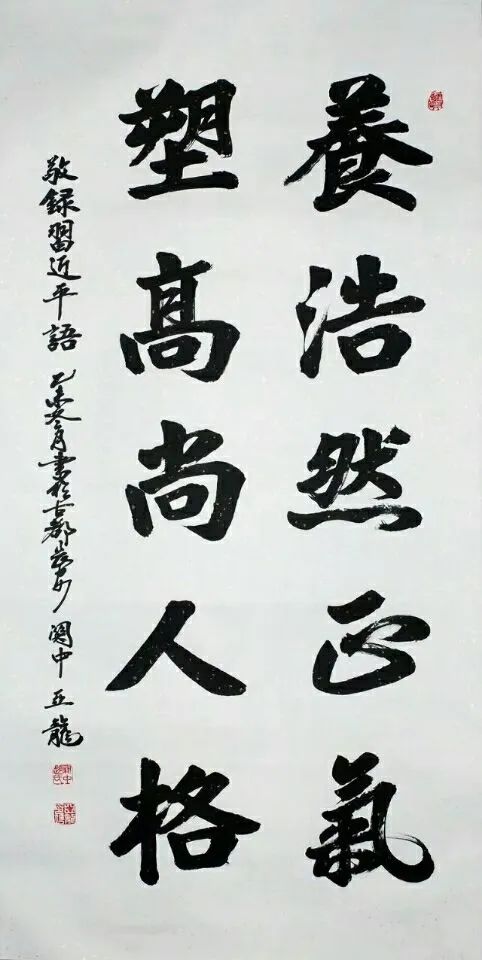 養浩然正氣
塑高尚人格
敬録習近平語 乙未冬月書於古都長安 關中 亚龍